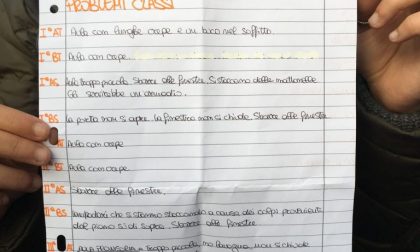 PROBLEMI CLASSI
I°AT Aula con lunghe crepe e un buco nel soffitto.
I°BT Aula con crepe.
I°AS Aula troppo piccola. Sbarre alle finestre. Si staccano delle mattonelle
Gli servirebbe un armadio.
I°BS La porta non si apre. La finestra non si chiude. Sbarre alle finestre.
Aula con crepe
Aula con crepe.
AS Sbarre alle finestre.
II°BS che si stanno staccando a causa dei colpi provenienti
dal piano di sopra. Sbarre alle finestre.
è troppo piccola, non si chiude